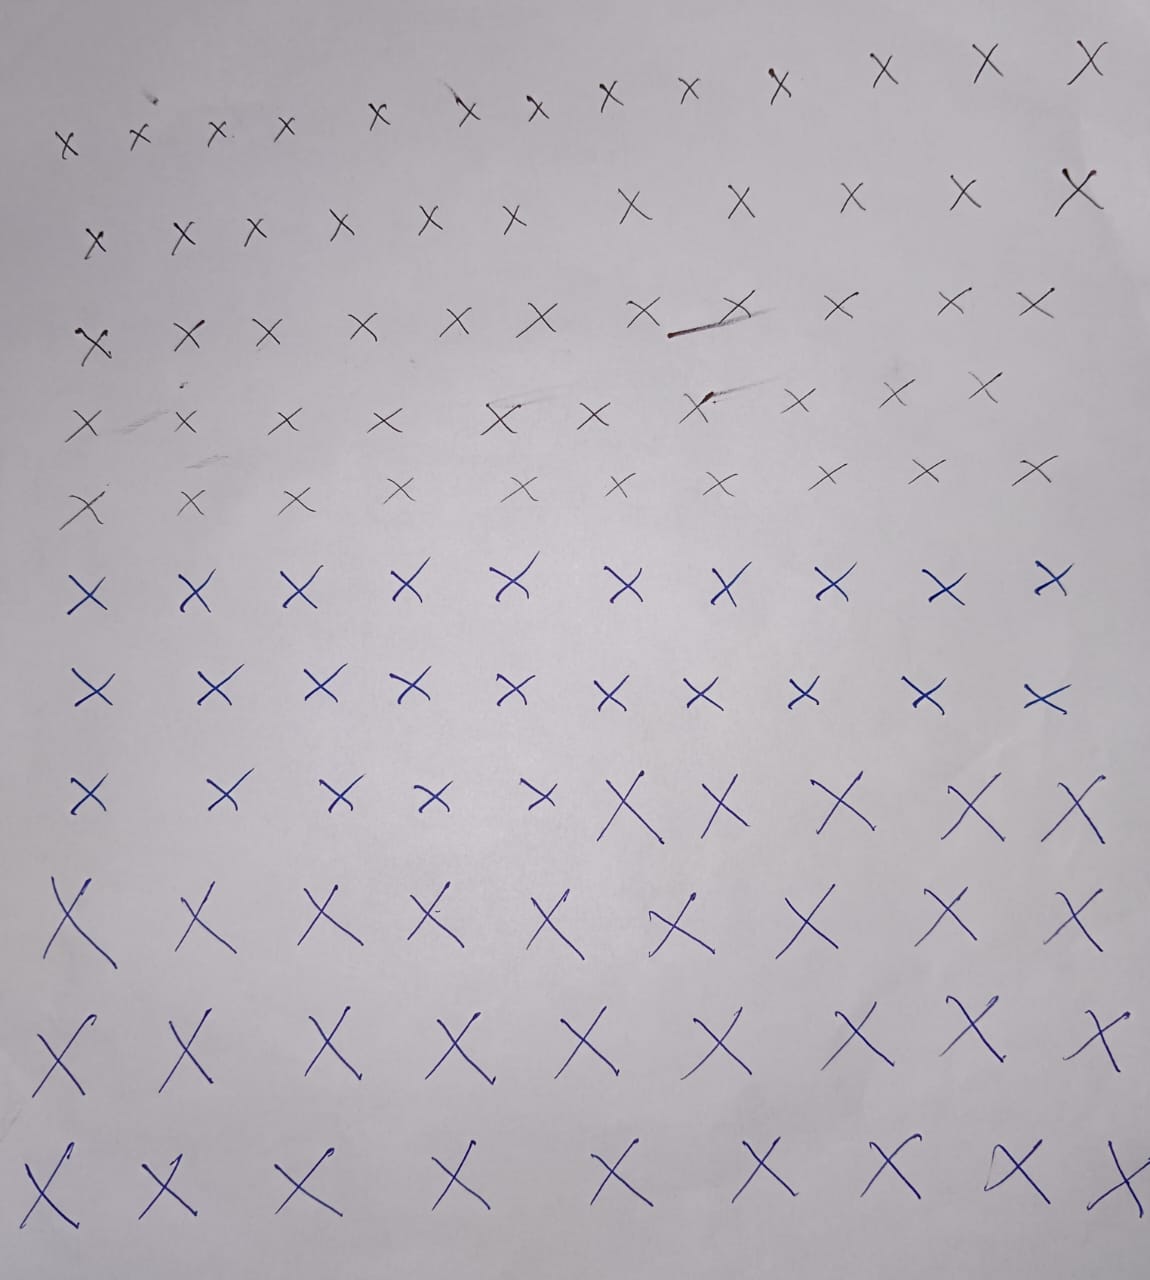 x x x x x x x x x x x x x
x x x x x x x x x x x
x x x x x x x x x x x
x x x x x x x x x x
x x x x x x x x x x
x x x x x x x x x x
x x x x x x x x x x
x x x x x x x x x x
x x x x x x x x x
x x x x x x x x x
x x x x x x x x x